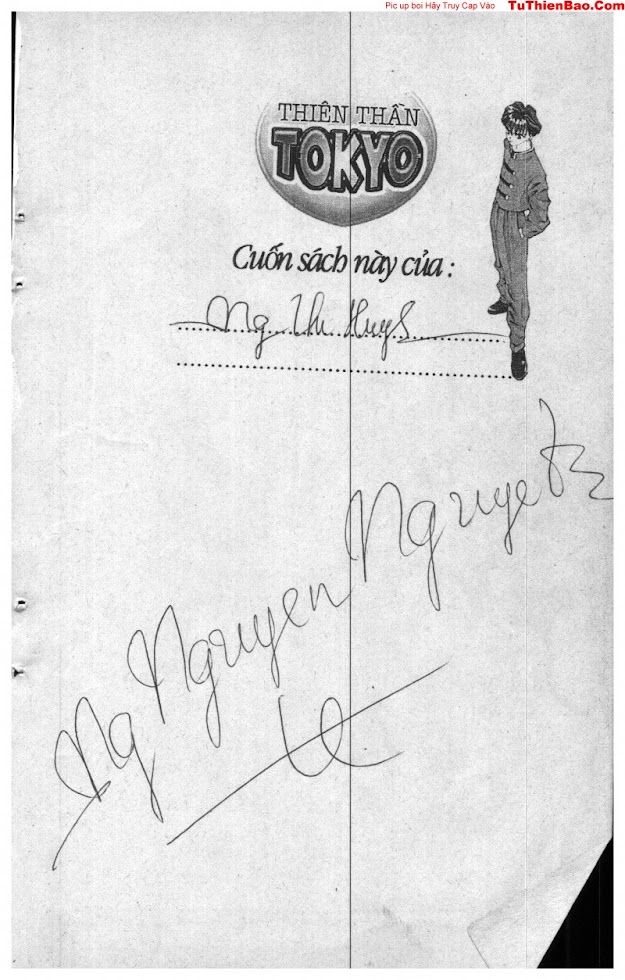 Pic up boi Hãy Truy Cap Vào TuThienBao.Com
THIÊN THẦN
TOKYO
Cuốn sách này của :
Ng Thi
Ng Nguyen Nguyet